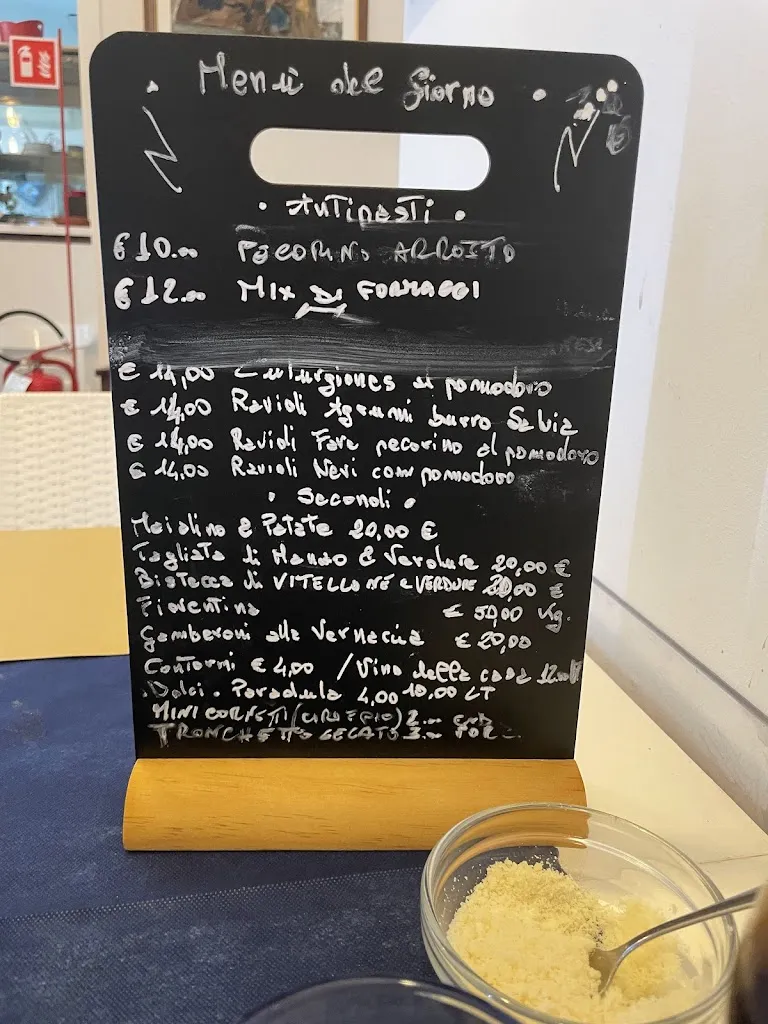 Menù del Giorno
Antipasti
€ 10.00 PECORINO ARROSTO
€ 12.00 MIX DI FORMAGGI
€ 14,00 Culurgiones al pomodoro
€ 14,00 Ravioli Agrumi burro Salvia
€ 14,00 Ravioli Fave pecorino al pomodoro
€ 14,00 Ravioli Neri con pomodoro
Secondi
Maialino e Patate 20,00 €
Tagliata di Manzo e Verdure 20,00 €
Bistecca di VITELLONE e VERDURE 20,00 €
Fiorentina € 50,00 Kg.
Gamberoni alla Vernaccia € 20,00
Contorni € 4,00 / Vino della casa 12.00
Dolci . Paradula 4,00 10,00 LT
MINI CORNETTI 2.00
TRONCHETTO GELATO 3.00